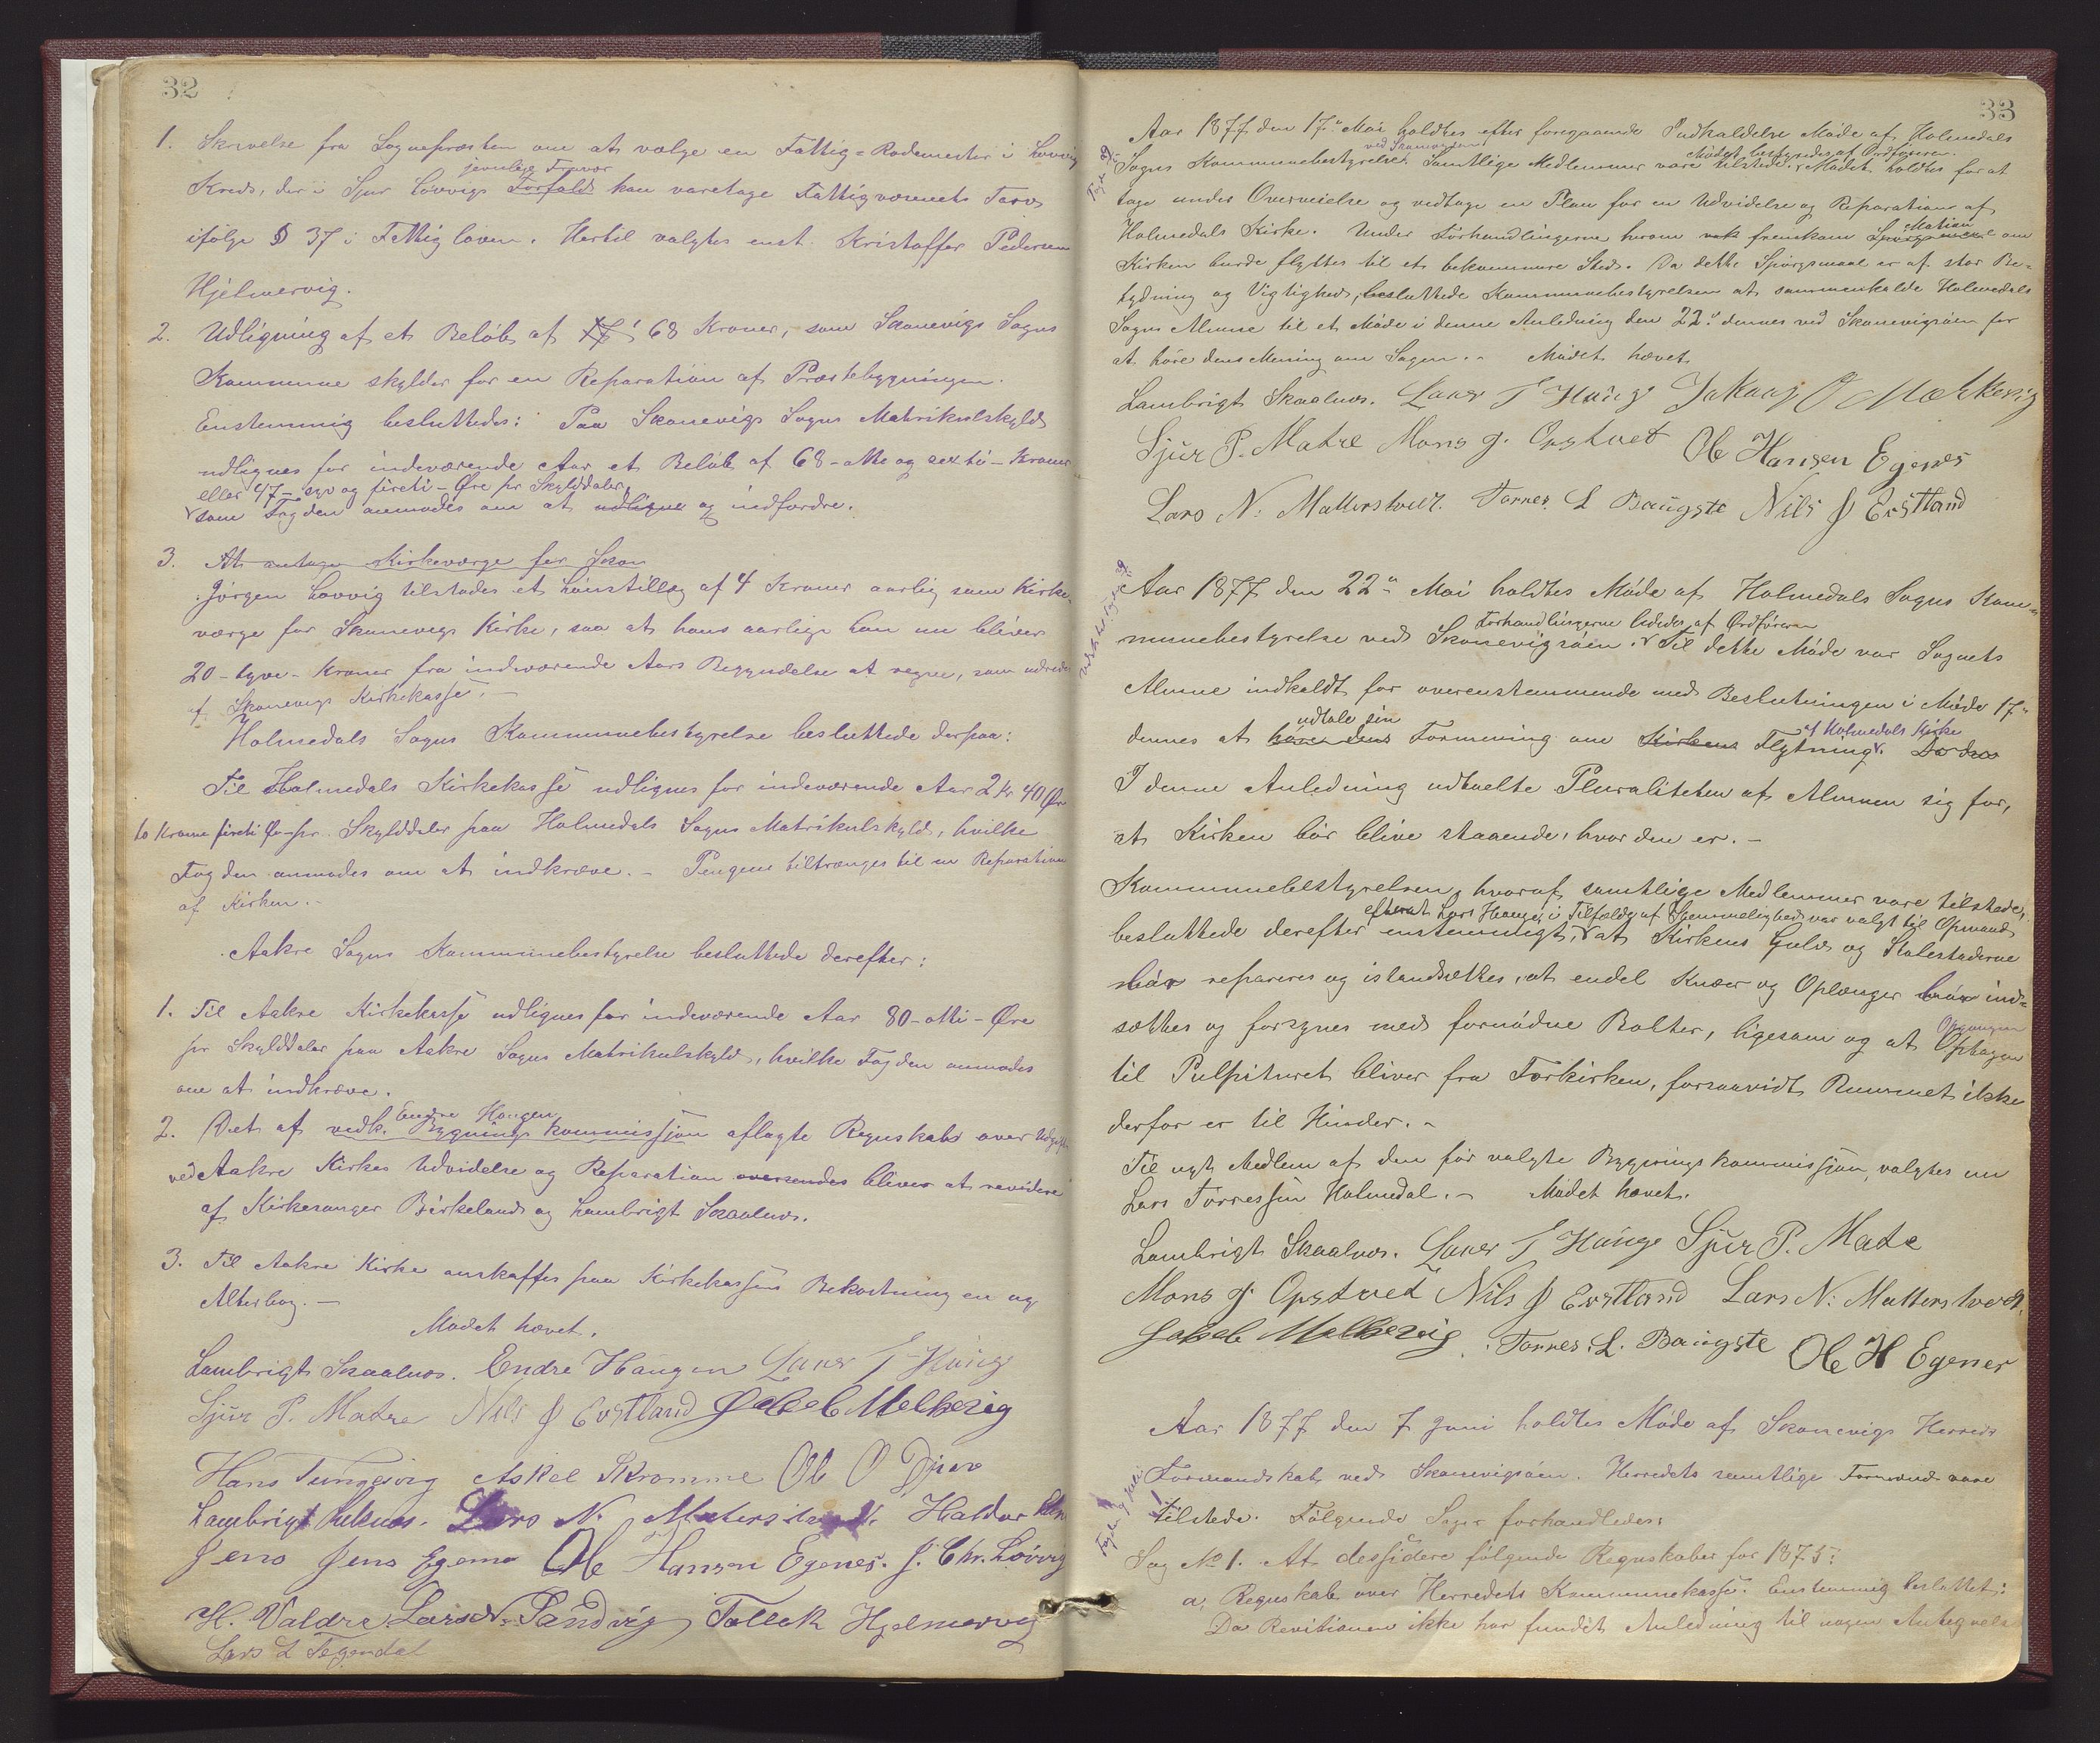 32
1. Skrivelse fra Sognepræsten om at vælge en Fattig-Rodemester i Lovvig
jevnlige Fravær
Kreds, der i Sjur Lovvigs Forfald kan varetage Fattigvæsenets Tarv
ifølge § 37 i Fattigloven. Hertil valgtes enst. Kristoffer Pedersen
Hjelmervig.
2. Udligning af et Beløb af 68 Kroner, som Skonevigs Sogns
Kommune skylder for en Reparation af Præstebygningen.
Enstemmig besluttedes: Paa Skonevigs Sogns Matrikulskyld
udlignes for indeværende Aar et Beløb af 68 - otte og sexti - Kroner
eller 47 - syv og fireti - Øre pr Skylddaler,
som Fogden anmodes om at udligne og indfordre.
3. At antage Kirkeværge for Skon
Jørgen Lovvig tilstodes et Lønstillæg af 4 Kroner aarlig som Kirke-
værge for Skonevigs Kirke, saa at hans aarlige Løn nu bliver
20 - tyve - Kroner fra indeværende Aars Begyndelse at regne, som udredes
af Skonevigs Kirkekasse. -
Holmedals Sogns Kommunebestyrelse besluttede derpaa:
Til Holmedals Kirkekasse udlignes for indeværende Aar 2 Kr 40 Øre
to Krone fireti Øre pr. Skylddaler paa Holmedals Sogns Matrikulskyld, hvilke
Fogden anmodes om at indkræve. - Pengene tiltrænges til en Reparation
af Kirken. -
Aakre Sogns Kommunebestyrelse besluttede derefter:
1. Til Aakre Kirkekasse udlignes for indeværende Aar 80 - otti - Øre
pr Skylddaler paa Aakre Sogns Matrikulskyld, hvilke Fogden anmodes
om at indkræve.
Endre Haugen
2. Det af vedk. Bygningskommissjon aflagte Regnskab over Udgifter
ved Aakre Kirkes Udvidelse og Reparation oversendes bliver at revidere
af Kirkesanger Birkeland og Lambrigt Skaalnes.
3. Til Aakre Kirke anskaffes paa Kirkekassens Bekostning en ny
Alterbog. -
Mødet hævet.
Lambrigt Skaalnes. Endre Haugen Laers T Hauge
Sjur P. Matre Nils J Østland Jakob Melkevig
Hans Tungesvig Askel Skromme Ole O Djuv
Lambrigt Lars N. Matersteadt. Haldor
Jens Jens Egenes Ole Hansen Egenes. J. Chr. Lovvig
H. Valdre Lars N. Sandvig Tollak Hjelmervig
Lars L Tegendal
33
Aar 1877 den 17de Mai holdtes efter foregaaende Indkaldelse Møde af Holmedals
ved Skonevigsøen Mødet bestyredes af Ordføreren.
Sogns Kommunebestyrelse. Samtlige Medlemmer vare tilstede. Mødet holdtes for at
tage under Overveielse og vedtage en Plan for en Udvidelse og Reparation af
Motion
Holmedals Kirke. Under Forhandlingerne herom fremkom Spørgsmaal om
Kirken burde flyttes til et bekvemmere Sted. Da dette Spørgsmaal er af stor Be-
tydning og Vigtighed, besluttede Kommunebestyrelsen at sammenkalde Holmedals
Sogns Almue til et Møde i denne Anledning den 22de dennes ved Skonevigsøen for
at høre dens Mening om Sagen. - Mødet hævet.
Lambrigt Skaalnes. Laers T Hauge Jakob O Melkevig
Sjur P. Matre Mons J. Opstvet Ole Hansen Egenes
Lars N. Matterstvedt. Torres L Baugste Nils J Østland
Aar 1877 den 22de Mai holdtes Møde af Holmedals Sogns Kom-
Forhandlingerne lededes af Ordføreren
munebestyrelse ved Skonevigsøen. Til dette Møde var Sognets
Almue indkaldt for overenstemmende med Beslutningen i Møde 17de
udtale sin af Holmedals Kirke
dennes at høre dens Formening om Kirkens Flytning.
I denne Anledning udtalte Pluraliteten af Almuen sig for,
at Kirken bør blive staaende, hvor den er. -
Kommunebestyrelsen, hvoraf samtlige Medlemmer vare tilstede,
efterat Lars Hauge i Tilfælde af Stemmelighed var valgt til Opmand
besluttede derefter enstemmigt, at Kirkens Gulv og Stolestaderne
bør repareres og istandsættes, at endel Knæer og Oplænger bør ind-
sættes og forsynes med fornødne Bolter, ligesom og at Opgangen
til Pulpituret bliver fra Forkirken, forsaavidt Rummet ikke
derfor er til Hinder. -
Til nyt Medlem af den før valgte Bygningskommissjon, valgtes nu
Lars Torressen Holmedal. - Mødet hævet.
Lambrigt Skaalnes. Laers T Hauge Sjur P. Matre
Mons J. Opstvet Nils J Østland Lars N. Matterstvedt.
Jakob Melkevig. Torres. L. Baugste Ole H Egenes
Aar 1877 den 7 Juni holdtes Møde af Skonevigs Herreds
Formandskab ved Skonevigsøen. Herredets samtlige Formænd vare
tilstede. Følgende Sager forhandledes:
Sag No 1. At dessidere følgende Regnskaber for 1875:
a. Regnskab over Herredets Kommunekasse. Enstemmig besluttet:
Da Revisionen ikke har fundet Anledning til nogen Antegnelse